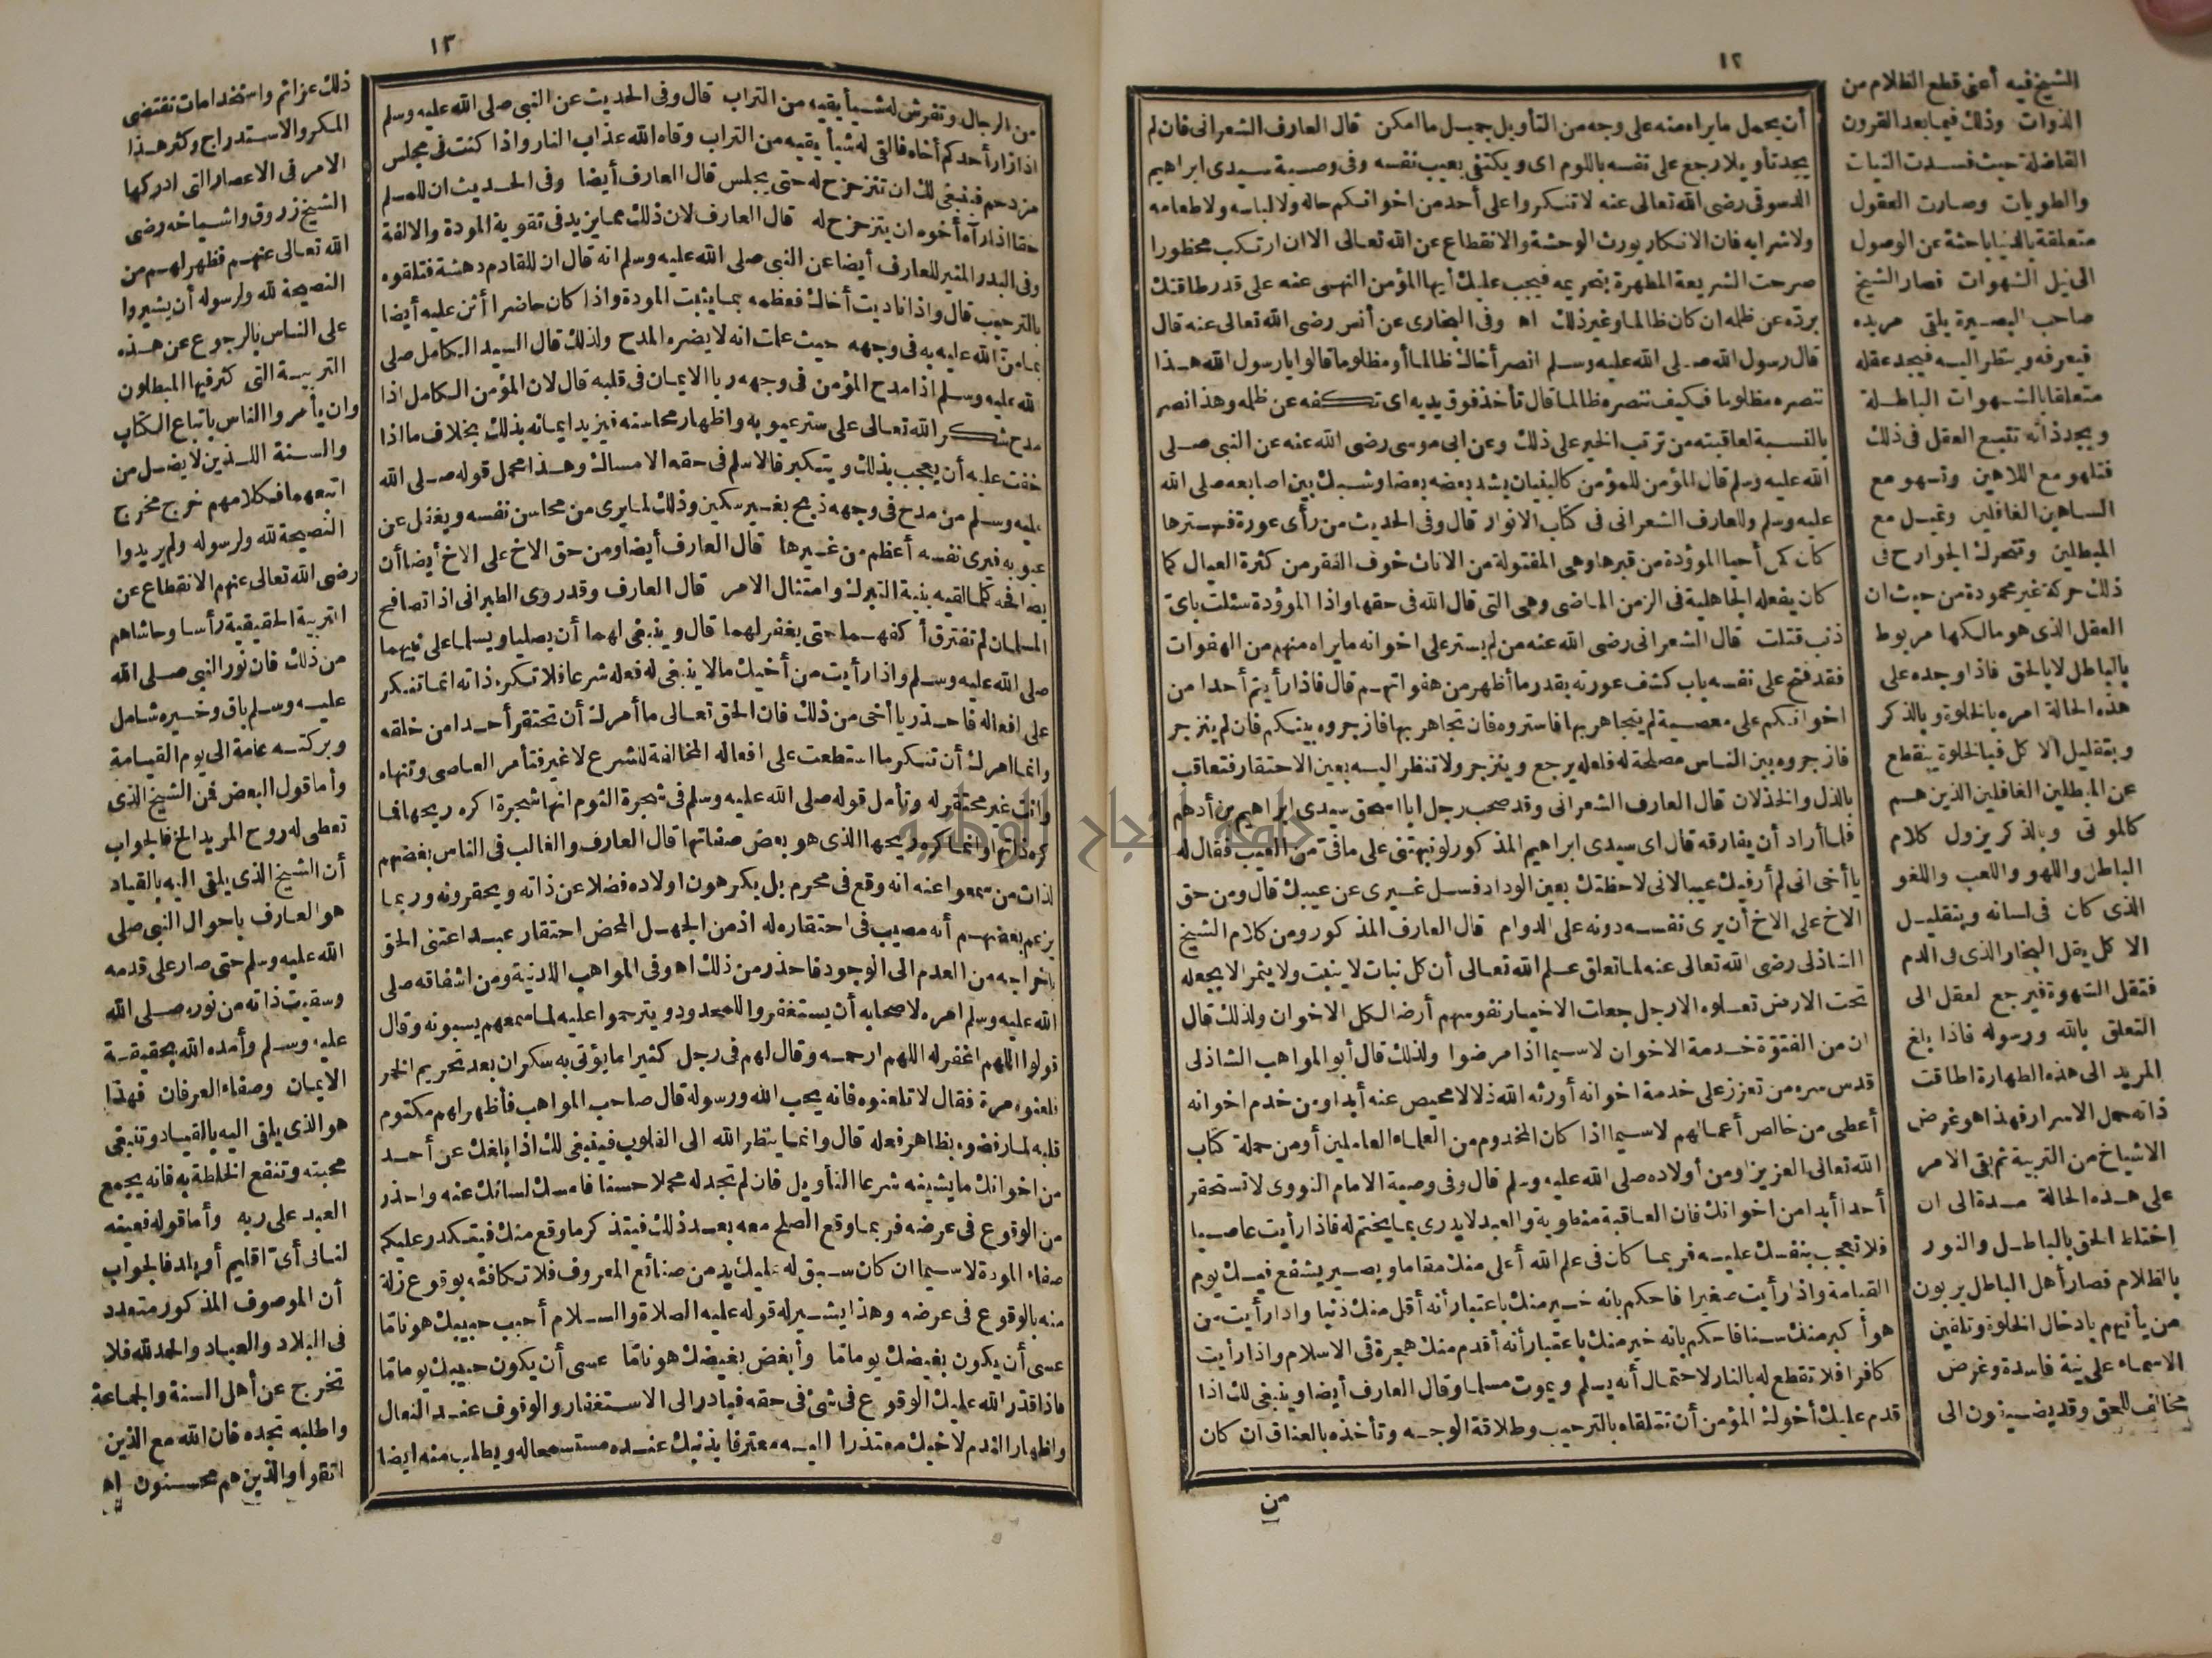 ١٢
أن يحمل مايراه منه على وجه من التأويل جميل ما امكن قال العارف الشعرانى فان لم
يجد تأويلا رجع على نفسه باللوم اى ويكتفى بعيب نفسه وفى وصية سيدى ابراهيم
الدسوقى رضى الله تعالى عنه لا تنكروا على أحد من اخوانكم حاله ولا لباسه ولا طعامه
ولا شرابه فان الانكار يورث الوحشة والانقطاع عن الله تعالى الا ان ارتكب محظورا
صرحت الشريعة المطهرة بتحريمه فيجب عليك أيها المؤمن النهى عنه على قدر طاقتك
بردّه عن ظلمه ان كان ظالما وغير ذلك اه وفى البخارى عن أنس رضى الله تعالى عنه قال
قال رسول الله صلى الله عليه وسلم انصر أخاك ظالما أو مظلوما قالوا يا رسول الله هذا
ننصره مظلوما فكيف ننصره ظالما قال تأخذ فوق يديه اى تكفه عن ظلمه وهذا نصر
بالنسبة لعاقبته من ترتب الخير على ذلك وعن ابى موسى رضى الله عنه عن النبى صلى
الله عليه وسلم قال المؤمن للمؤمن كالبنيان يشد بعضه بعضا وشبك بين اصابعه صلى الله
عليه وسلم وللعارف الشعرانى فى كتاب الانوار قال وفى الحديث من رأى عورة فسترها
كان كمن أحيا الموؤدة من قبرها وهى المقتولة من الاناث خوف الفقر من كثرة العيال كما
كان يفعله الجاهلية فى الزمن الماضى وهى التى قال الله فى حقها واذا الموؤدة سئلت باىّ
ذنب قتلت قال الشعرانى رضى الله عنه من لم يستر على اخوانه مايراه منهم من الهفوات
فقد فتح على نفسه باب كشف عورته بقدر ما أظهر من هفواتهم قال فاذا رأيتم أحدا من
اخوانكم على معصية لم يتجاهر بها فاستروه فان تجاهر بها فازجروه بينكم فان لم ينزجر
فازجروه بين الناس مصلحة له فلعله يرجع وينزجر ولا تنظر اليه بعين الاحتقار فتعاقب
بالذل والخذلان قال العارف الشعرانى وقد صحب رجل ابا اسحق سيدى ابراهيم بن أدهم
فلما أراد أن يفارقه قال اى سيدى ابراهيم المذكور لو نبهتنى على ما فىّ من العيب فقال له
يا أخى انى لم أر فيك عيبا لانى لاحظتك بعين الوداد فسل غيرى عن عيبك قال ومن حق
الاخ على الاخ أن يرى نفسه دونه على الدوام قال العارف المذكور ومن كلام الشيخ
الشاذلى رضى الله تعالى عنه لما تعلق علم الله تعالى أن كل نبات لا ينبت ولا يثمر الا بجعله
تحت الارض تعلوه الارجل جعلت الاخيار نفوسهم أرضا لكل الاخوان ولذلك قال
ان من الفتوّة خدمة الاخوان لاسيما اذا مرضوا ولذلك قال أبو المواهب الشاذلى
قدس سره من تعزز على خدمة اخوانه أورثه الله ذلا لا محيص عنه أبدا ومن خدم اخوانه
أعطى من خالص أعمالهم لاسيما اذا كان المخدوم من العلماء العاملين أو من حملة كتاب
الله تعالى العزيز او من أولاده صلى الله عليه وسلم قال وفى وصية الامام النووى لا تستحقر
أحدا أبدا من اخوانك فان العاقبة منطوية والعبد لا يدرى بما يختم له فاذا رأيت عاصيا
فلا تعجب بنفسك عليه فربما كان فى علم الله أعلى منك مقاما ويصير يشفع فيك يوم
القيامة واذا رأيت صغيرا فاحكم بانه خير منك باعتبار أنه أقل منك ذنبا واذا رأيت من
هو أكبر منك سنا فاحكم بانه خير منك باعتبار أنه أقدم منك هجرة فى الاسلام واذا رأيت
كافرا فلا تقطع له بالنار لاحتمال أنه يسلم ويموت مسلما وقال العارف أيضا وينبغى لك اذا
قدم عليك أخوك المؤمن أن تتلقاه بالترحيب وطلاقة الوجه وتأخذه بالعناق ان كان
من
الشيخ فيه أعنى قطع الظلام من
الذوات وذلك فيما بعد القرون
الفاضلة حيث فسدت النيات
والطويات وصارت العقول
متعلقة بالدنيا باحثة عن الوصول
الى نيل الشهوات فصار الشيخ
صاحب البصيرة يلقى مريده
فيعرفه وينظر اليه فيجد عقله
متعلقا بالشهوات الباطلة
ويجد ذاته تتبع العقل فى ذلك
فتلهو مع اللاهين وتسهو مع
الساهين الغافلين وتميل مع
المبطلين وتتحرك الجوارح فى
ذلك حركة غير محمودة من حيث ان
العقل الذى هو مالكها مربوط
بالباطل لا بالحق فاذا وجده على
هذه الحالة امره بالخلوة وبالذكر
وبتقليل الاكل فبالخلوة ينقطع
عن المبطلين الغافلين الذين هم
كالموتى وبالذكر يزول كلام
الباطل واللهو واللعب واللغو
الذى كان فى لسانه وبتقليل
الاكل يقل البخار الذى فى الدم
فتقل الشهوة فيرجع لعقل الى
التعلق بالله ورسوله فاذا بلغ
المريد الى هذه الطهارة اطاقت
ذاته حمل الاسرار فهذا هو غرض
الاشياخ من التربية ثم بقى الامر
على هذه الحالة مدة الى ان
اختلط الحق بالباطل والنور
بالظلام فصار أهل الباطل يربون
من يأتيهم بادخال الخلوة وتلقين
الاسماء على نية فاسدة وغرض
مخالف للحق وقد يضيفون الى
١٣
من الرجال وتفرش له شيأ يقيه من التراب قال وفى الحديث عن النبى صلى الله عليه وسلم
اذا زار أحدكم أخاه فالقى له شيأ يقيه من التراب وقاه الله عذاب النار واذا كنت فى مجلس
مزدحم فينبغى لك ان تتزحزح له حتى يجلس قال العارف أيضا وفى الحديث ان للمسلم
حقا اذا رآه أخوه ان يتزحزح له قال العارف لان ذلك مما يزيد فى تقوية المودة والالفة
وفى البدر المنير للعارف أيضا عن النبى صلى الله عليه وسلم انه قال ان للقادم دهشة فتلقوه
بالترحيب قال واذا ناديت أخاك فعظمه بما يثبت المودة واذا كان حاضرا أثن عليه أيضا
بما منّ الله عليه به فى وجهه حيث علمت انه لا يضره المدح ولذلك قال السيد الكامل صلى
لله عليه وسلم اذا مدح المؤمن فى وجهه ربا الايمان فى قلبه قال لان المؤمن الكامل اذا
مدح شكر الله تعالى على ستر عيوبه واظهار محاسنه فيزيد ايمانه بذلك بخلاف ما اذا
خفت عليه أن يعجب بذلك ويتكبر فالاسلم فى حقه الامساك وهذا محمل قوله صلى الله
عليه وسلم من مدح فى وجهه ذبح بغير سكين وذلك لما يرى من محاسن نفسه ويغفل عن
عيوبه فيرى نفسه أعظم من غيرها قال العارف أيضا ومن حق الاخ على الاخ أيضا أن
يصافحه كلما لقيه بنية التبرك وامتثال الامر قال العارف وقد روى الطبرانى اذا تصافح
المسلمان لم تفترق أكفهما حتى يغفر لهما قال وينبغى لهما أن يصليا ويسلما على نبيهما
صلى الله عليه وسلم واذا رأيت من أخيك ما لا ينبغى له فعله شرعا فلا تكره ذاته انما تنكر
على افعاله فاحذر يا أخى من ذلك فان الحق تعالى ما أمرك أن تحتقر أحدا من خلقه
وانما امرك أن تنكر ما استطعت على افعاله المخالفة للشرع لا غير فتأمر العاصى وتنهاه
وانت غير محتقر له وتأمل قوله صلى الله عليه وسلم فى شجرة الثوم انها شجرة اكره ريحها فما
كره ذاتها وانما كره ريحها الذى هو بعض صفاتها قال العارف والغالب فى الناس بغضهم
لذات من سمعوا عنه انه وقع فى محرم بل يكرهون اولاده فضلا عن ذاته ويحقرونه وربما
يزعم بعضهم أنه مصيب فى احتقاره له اذ من الجهل المحض احتقار عبد اعتنى الحق
باخراجه من العدم الى الوجود فاحذر من ذلك اه وفى المواهب اللدنية ومن اشفاقه صلى
الله عليه وسلم امره لاصحابه أن يستغفروا للمحدود ويترحموا عليه لما سمعهم يسبونه وقال
قولوا اللهم اغفر له اللهم ارحمه وقال لهم فى رجل كثيرا ما يؤتى به سكران بعد تحريم الخمر
فلعنوه مرة فقال لا تلعنوه فانه يحب الله ورسوله قال صاحب المواهب فأظهر لهم مكتوم
قلبه لما رفضوه بظاهر فعله قال وانما ينظر الله الى القلوب فينبغى لك اذا بلغك عن أحد
من اخوانك ما يشينه شرعا التأويل فان لم تجد له محملا حسنا فامسك لسانك عنه واحذر
من الوقوع فى عرضه فربما وقع الصلح معه بعد ذلك فيتذكر ما وقع منك فيتكدر عليكم
صفاء المودة لاسيما ان كان سبق له عليك يد من صنائع المعروف فلا تكافئه بوقوع زلة
منه بالوقوع فى عرضه وهذا يشير له قوله عليه الصلاة والسلام أحبب حبيبك هونا تا
عسى أن يكون بغيضك يوما تا وأبغض بغيضك هونا تا عسى أن يكون حبيبك يوما تا
فاذا قدّر الله عليك الوقوع فى شئ فى حقه فبادر الى الاستغفار والوقوف عند النعال
واظهار الندم لاخيك معتذرا اليه معترفا بذنبك عنده مستسمحا له ويطلب منه ايضا
ذلك عزائم واستخدامات تقتضى
المكر والاستدراج وكثر هذا
الامر فى الاعصار التى ادركها
الشيخ زروق واشياخه رضى
الله تعالى عنهم فظهر لهم من
النصيحة لله ولرسوله أن يشيروا
على الناس بالرجوع عن هذه
التربية التى كثر فيها المبطلون
وان يأمروا الناس باتباع الكتاب
والسنة اللذين لا يضل من
اتبعهما فكلامهم خرج مخرج
النصيحة لله ولرسوله ولم يريدوا
رضى الله تعالى عنهم الانقطاع عن
التربية الحقيقية رأسا وحاشاهم
من ذلك فان نور النبى صلى الله
عليه وسلم باق وخيره شامل
وبركته عامة الى يوم القيامة
وأما قول البعض فمن الشيخ الذى
تعطى له روح المريد الخ فالجواب
أن الشيخ الذى يلقى اليه بالقياد
هو العارف باحوال النبى صلى
الله عليه وسلم حتى صار على قدمه
وسقيت ذاته من نوره صلى الله
عليه وسلم وأمده الله بحقيقة
الايمان وصفاء العرفان فهذا
هو الذى يلقى اليه بالقياد وتنبغى
محبته وتنفع الخلطة به فانه يجمع
العبد على ربه وأما قوله فعينه
لنا فى أىّ اقليم أو بلد فالجواب
أن الموصوف المذكور متعدد
فى البلاد والعباد والحمد لله فلا
تخرج عن أهل السنة والجماعة
واطلبه تجده فان الله مع الذين
اتقوا والذين هم محسنون اه
جامعة النجاح الوطنية